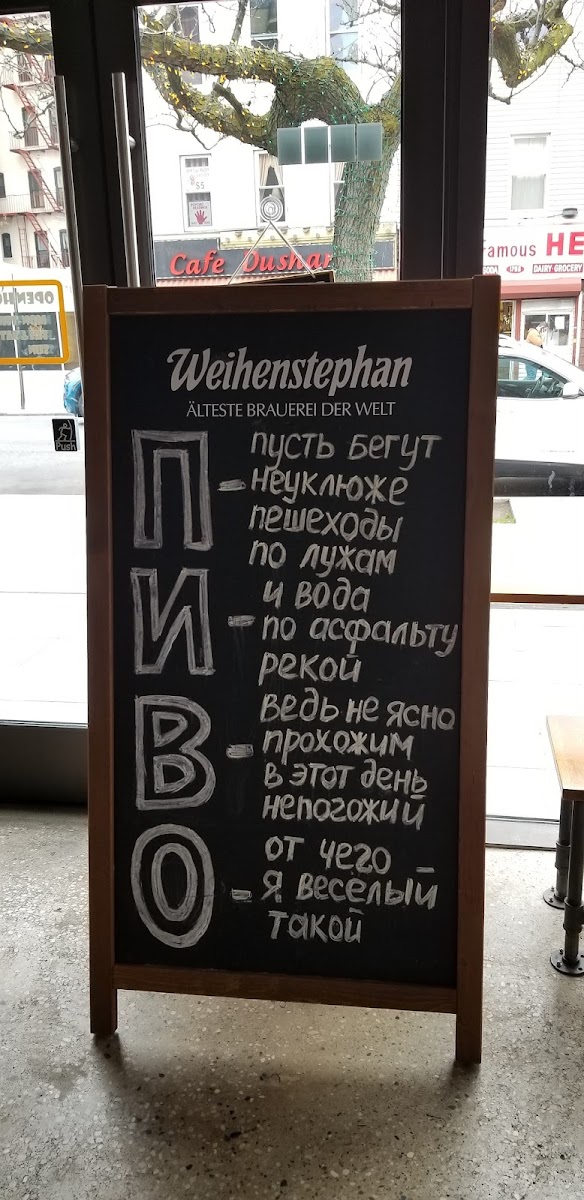 Cafe Dushan
amous HE
SODA
DAIRY GROCERY
OPEN
55
Push
Weihenstephan
ÄLTESTE BRAUEREI DER WELT
П - пусть бегут
неуклюже
пешеходы
по лужам
И - и вода
по асфальту
рекой
В - ведь не ясно
прохожим
в этот день
непогожий
О - от чего -
я весёлый
такой